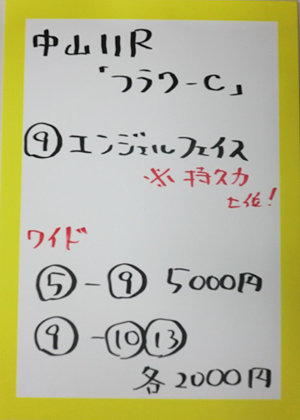 中山11R
「フラワーC」
⑨エンジェルフェイス
※持久力
上位!
ワイド
⑤-⑨ 5000円
⑨-⑩⑬
各2000円